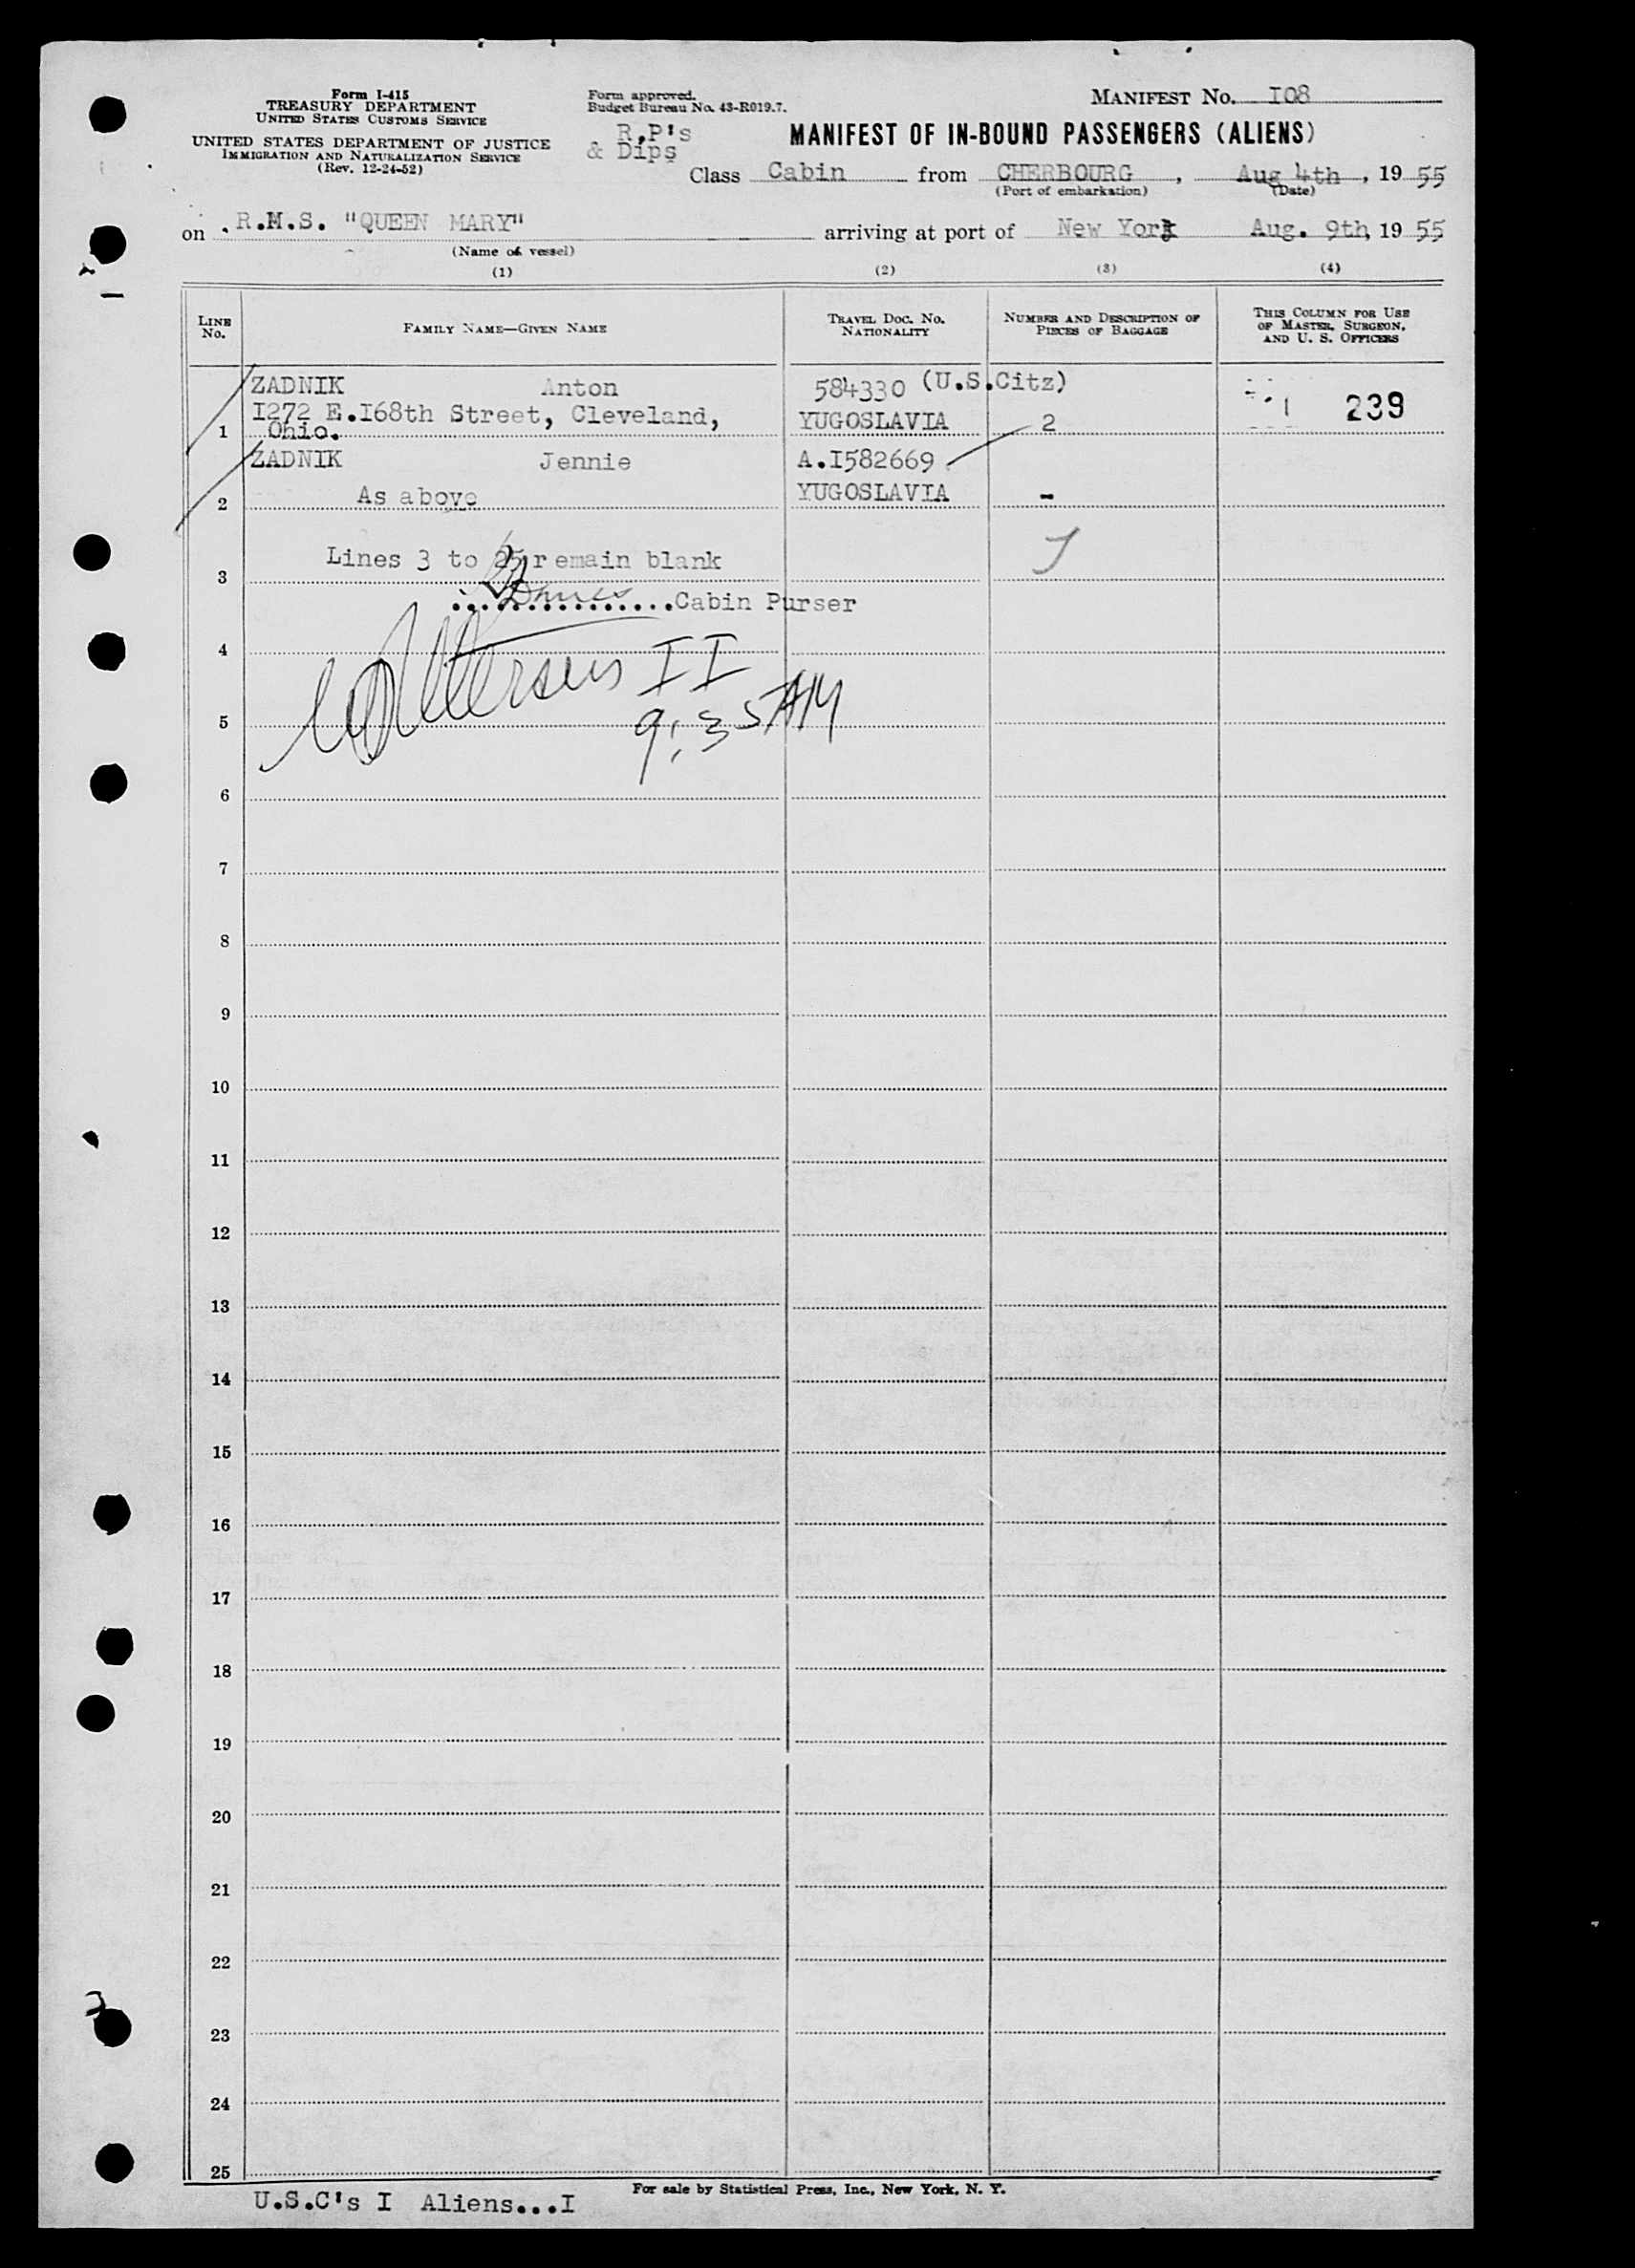 Form I-415
TREASURY DEPARTMENT
UNITED STATES CUSTOMS SERVICE
UNITED STATES DEPARTMENT OF JUSTICE
IMMIGRATION AND NATURALIZATION SERVICE
(Rev. 12-24-52)
Form approved.
Budget Bureau No. 43-R019.7.
R.P's
& Dips
MANIFEST No. I08
MANIFEST OF IN-BOUND PASSENGERS (ALIENS)
Class Cabin from CHERBOURG, Aug 4th, 19 55
(Port of embarkation) (Date)
on R.M.S. "QUEEN MARY" arriving at port of New York Aug. 9th, 19 55
(Name of vessel)
(1) (2) (3) (4)
LINE No. FAMILY NAME—GIVEN NAME TRAVEL DOC. No. NATIONALITY NUMBER AND DESCRIPTION OF PIECES OF BAGGAGE THIS COLUMN FOR USE OF MASTER, SURGEON, AND U. S. OFFICERS
ZADNIK Anton 584330 (U.S.Citz) 239
I272 E.I68th Street, Cleveland, YUGOSLAVIA 2
1 Ohio.
ZADNIK Jennie A.I582669
2 As above YUGOSLAVIA -
Lines 3 to 25 remain blank
3
...............Cabin Purser
4 II
5 9:35 AM
6
7
8
9
10
11
12
13
14
15
16
17
18
19
20
21
22
23
24
25
U.S.C's I Aliens...I
For sale by Statistical Press, Inc., New York, N. Y.